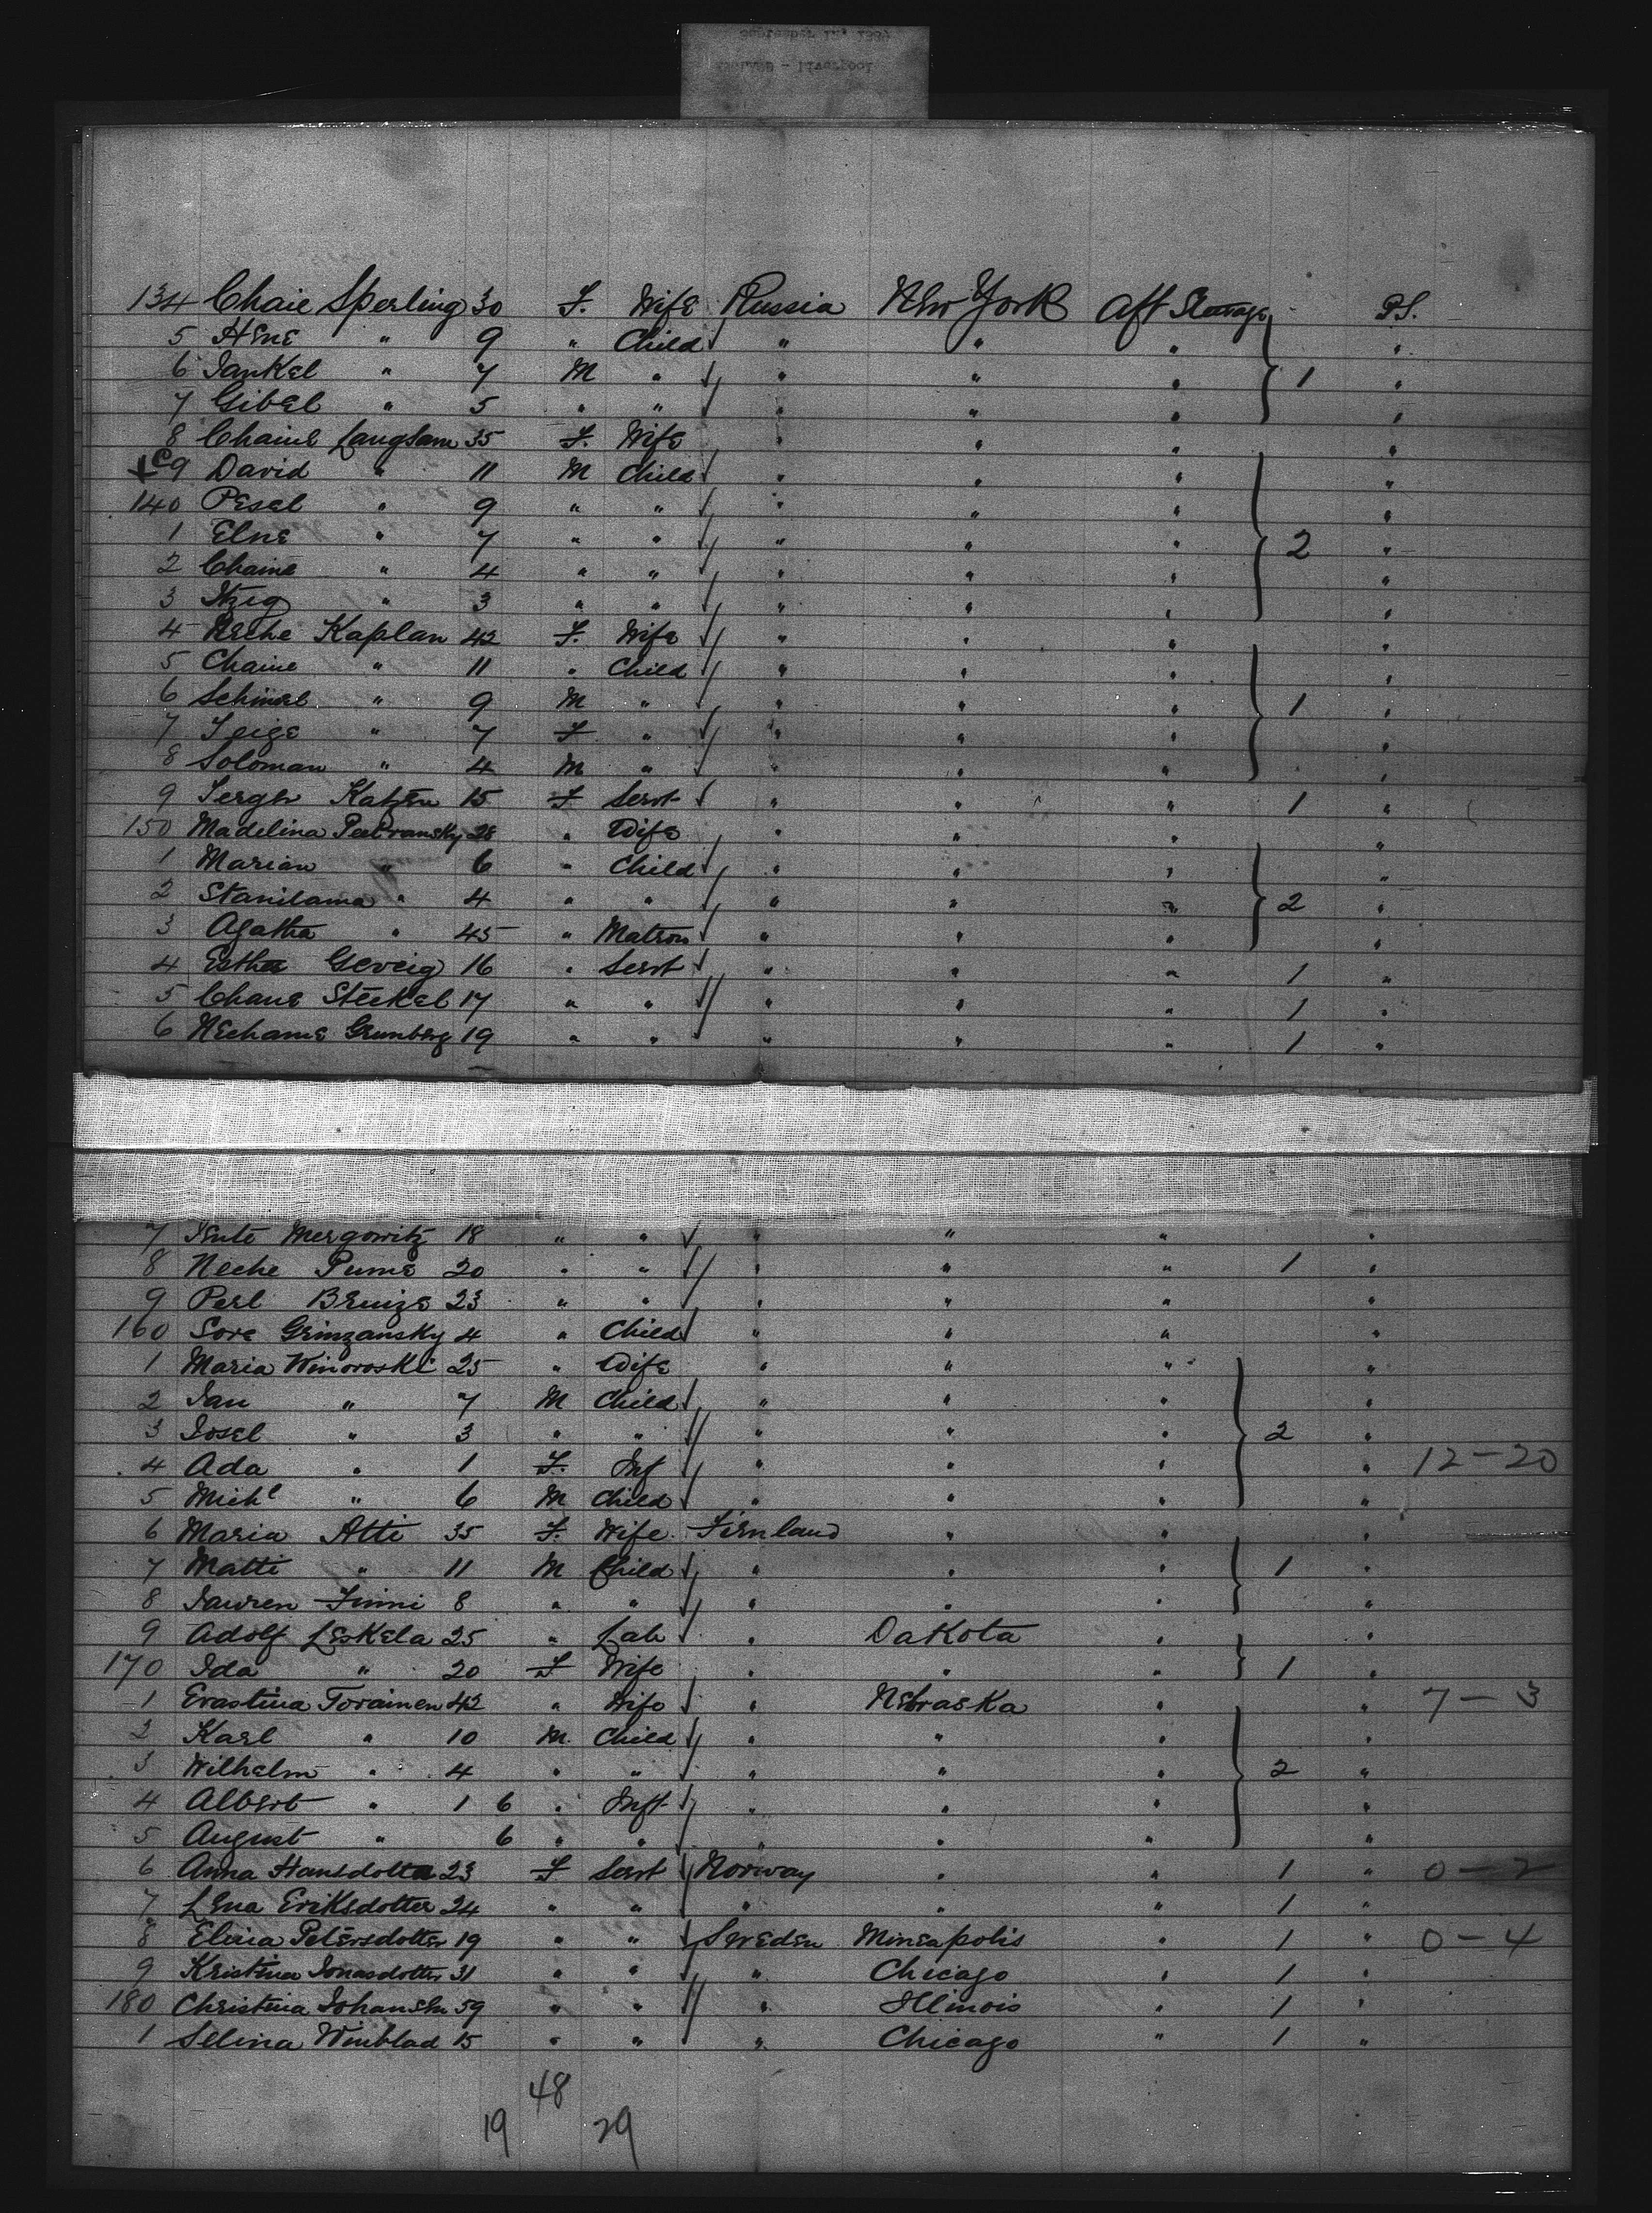 134 Chaie Sperling 30 F. Wife Russia New York Aft Steerage P.S.
5 Hene " 9 " Child " " " "
6 Jankel " 7 M " " " " 1 "
7 Gibel " 5 " " " " " "
8 Chaine Langsam 35 F. Wife " " " "
9 David " 11 M Child " " " "
140 Pesel " 9 " " " " " "
1 Elne " 7 " " " " " 2 "
2 Chaine " 4 " " " " " "
3 Itzig " 3 " " " " " "
4 Kaplan 42 F. Wife " " " "
5 Chaine " 11 " Child " " " "
6 Schmul " 9 M " " " " 1 "
7 Feige " 7 F " " " " "
8 Soloman " 4 M " " " " "
9 Katzen 15 F Servt " " " 1 "
150 Madelina Petransky 28 " Wife " " " "
1 Marian " 6 " Child " " " "
2 Stanilama " 4 " " " " " 2 "
3 Agatha " 45 " Matron " " " "
4 Esther Geveig 16 " Servt " " " 1 "
5 Chane Steckel 17 " " " " " 1 "
6 Nechame Grunberg 19 " " " " " 1 "
7 Mergowitz 18 " " " " " "
8 Neche Pume 20 " " " " " 1 "
9 Perl 23 " " " " " "
160 Sore Grinzansky 4 " Child " " " "
1 Maria Winoroski 25 " Wife " " " "
2 Jan " 7 M Child " " " "
3 Josel " 3 " " " " " 2 "
4 Ada " 1 F. Inf " " " " 12-20
5 Michl " 6 M Child " " " "
6 Maria Atti 35 F. Wife Finnland " " "
7 Matti " 11 M Child " " " 1 "
8 Finni 8 " " " " " "
9 Adolf Leskela 25 " Lab " Dakota " "
170 Ida " 20 F Wife " " " 1 "
1 Torainen 42 " Wife " Nebraska " " 7-3
2 Karl " 10 M. Child " " " "
3 Wilhelm " 4 " " " " " 2 "
4 Albert " 1 6 " Inft " " " "
5 August " 6 " " " " " "
6 Anna Hansdotter 23 F Servt Norway " " 1 " 0-2
7 Lena Eriksdotter 24 " " " " " 1 "
8 Petersdotter 19 " " Sweden Mineapolis " 1 " 0-4
9 Kristina Jonasdotter 31 " " " Chicago " 1 "
180 Christina 59 " " " Illinois " 1 "
1 Selina Winblad 15 " " " Chicago " 1 "
48
19 29